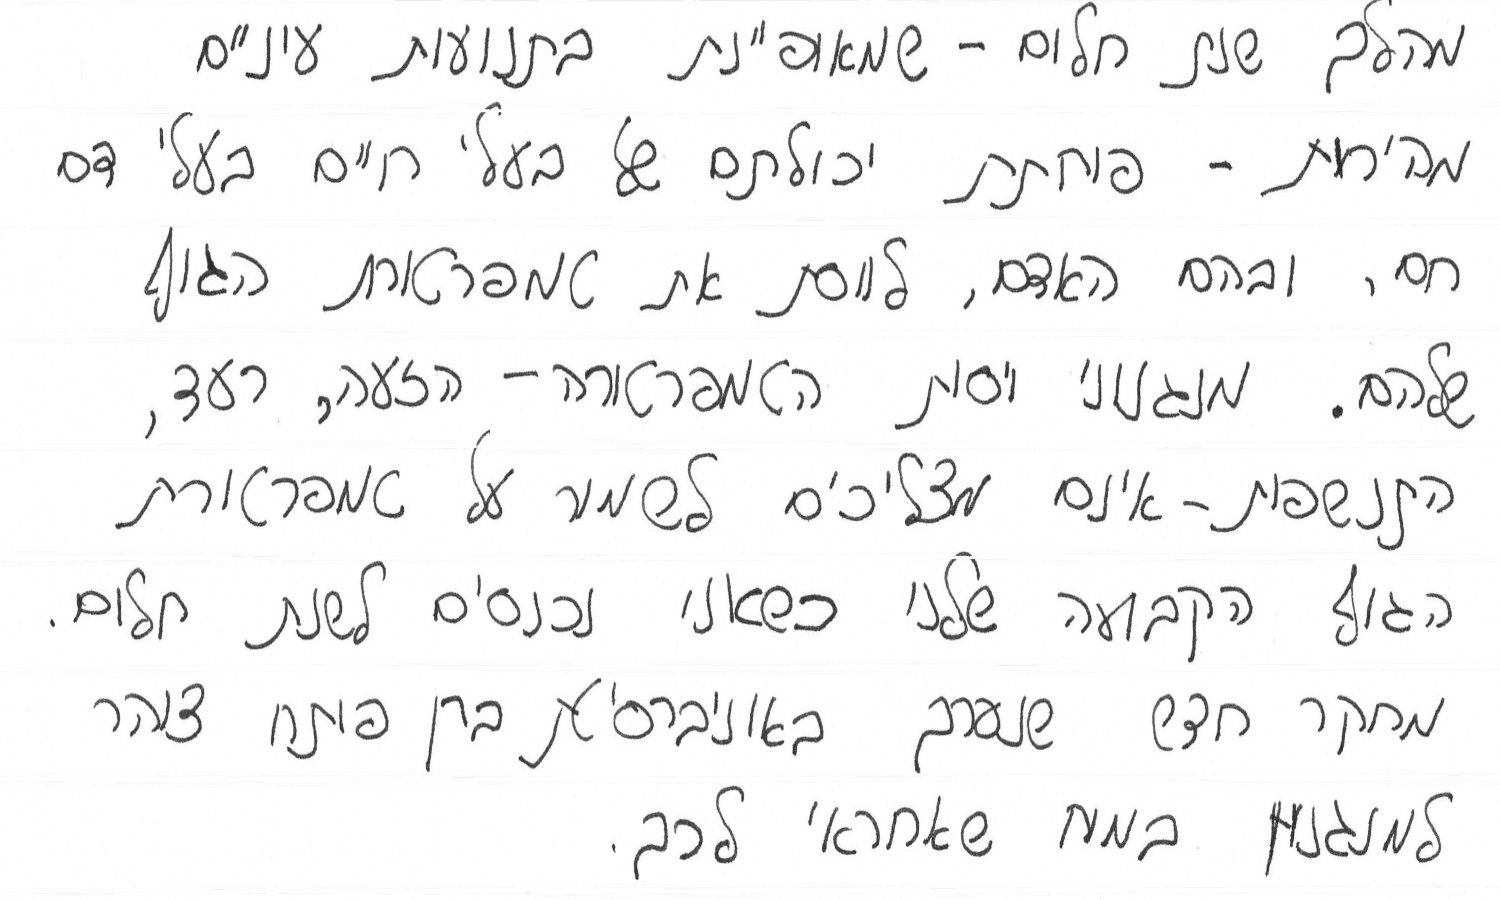 מהלך שנת חלום - שמאופיינת בתנועות עיניים
מהירות - פוחתת יכולתם של בעלי חיים בעלי דם
חם, ובהם האדם, לווסת את טמפרטורת הגוף
שלהם. מנגנוני ויסות הטמפרטורה - הזעה, רעד,
התנשפות - אינם מצליחים לשמור על טמפרטורת
הגוף הקבועה שלנו כשאנו נכנסים לשנת חלום.
מחקר חדש שנערך באוניברסיטת ברן פותח צוהר
למנגנון במוח שאחראי לכך.